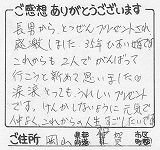 ご感想ありがとうございます
長男から とつぜん プレゼントされ
感激しました 35年ひまい婚です
これからも 2人で がんばって
行こうと 新めて 思いました
涙 涙 とっても うれしい プレゼント
です。けんかしないように 元気で
仲よく、これからの人生すごしたいです
ご住所 岡山